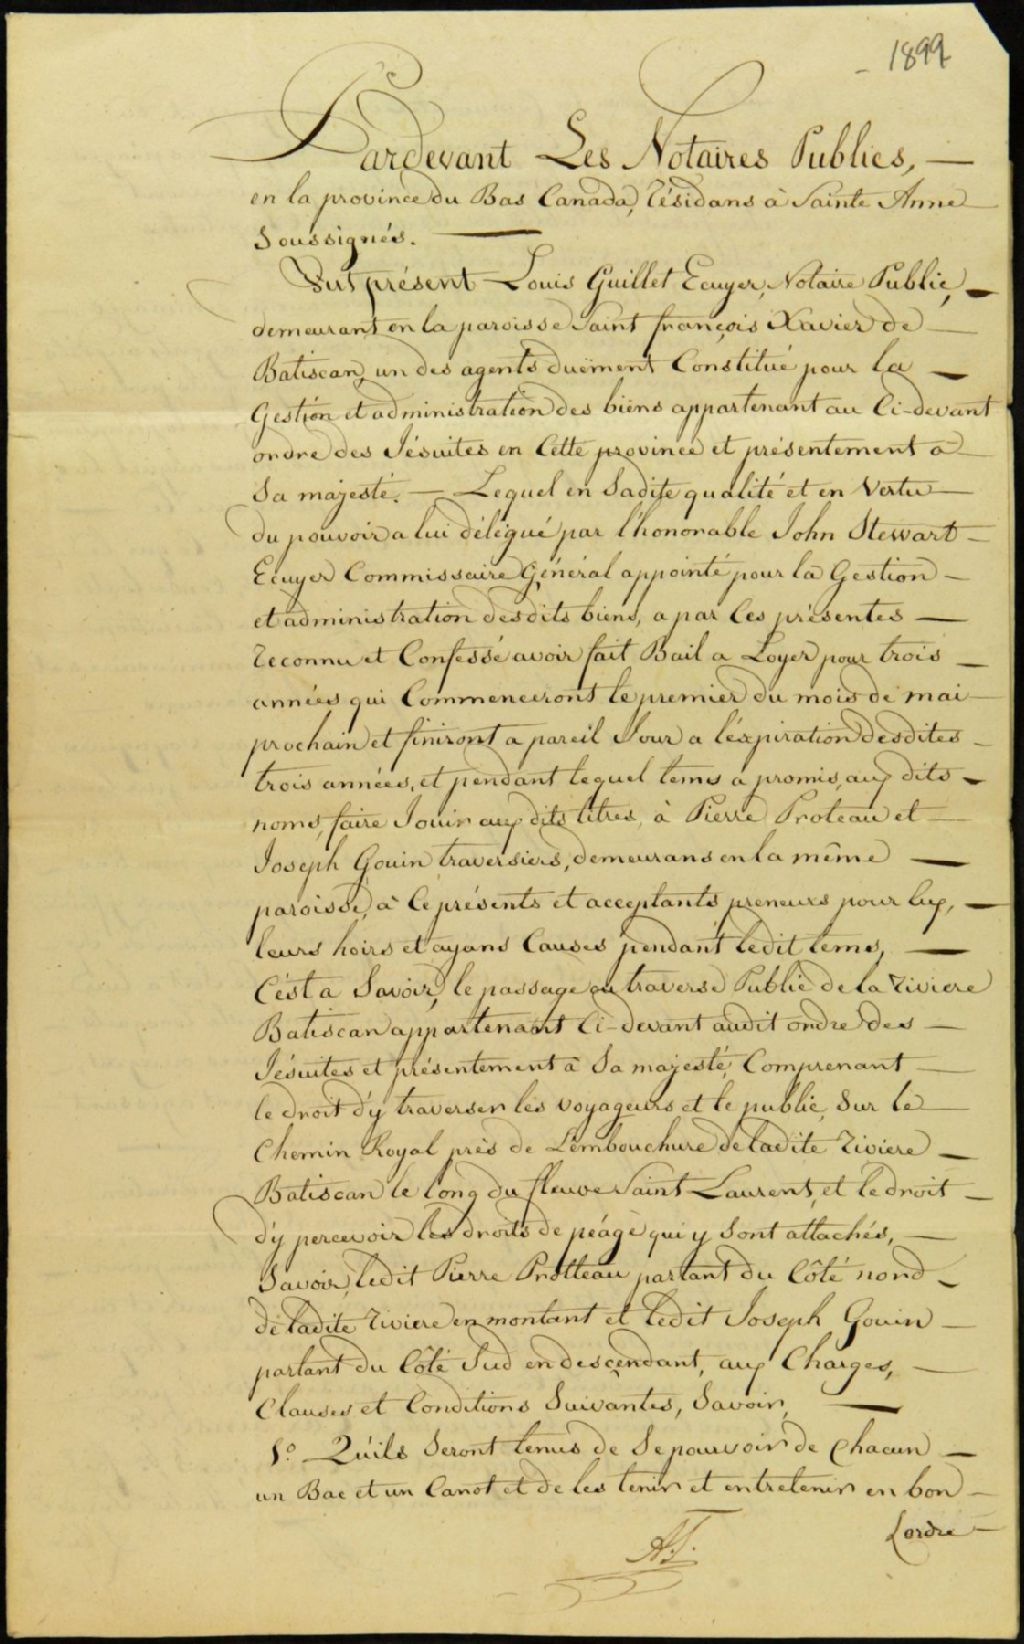 1899
Pardevant Les Notaires Publics, —
en la province du Bas Canada, résidans à Sainte Anne
Soussignés. —
Fut présent Louis Guillet Ecuyer, Notaire Public, —
demeurant en la paroisse Saint françois Xavier de —
Batiscan, un des agents duëment Constitué pour la —
Gestion et administration des biens appartenant au Ci-devant
ordre des Jésuites en Cette province et présentement à
Sa majesté. — Lequel en Sadite qualité et en Vertu —
du pouvoir a lui délégué par l'honorable John Stewart —
Ecuyer Commissaire Général appointé pour la Gestion —
et administration desdits biens, a par Ces présentes —
reconnu et Confessé avoir fait Bail a Loyer pour trois —
années qui Commenceront le premier du mois de mai —
prochain et finiront a pareil Jour a l'éxpiration desdites —
trois années, et pendant lequel tems a promis, aux dits —
noms, faire Jouir aux dits titres, à Pierre Proteau et —
Joseph Gouin traversiers, demeurans en la même —
paroisse, à Ce présents et acceptants preneurs pour eux, —
leurs hoirs et ayans Causes pendant ledit tems, —
C'ést a Savoir, le passage ou traverse Public de la riviere
Batiscan appartenant Ci-devant audit ordre des —
Jésuites et présentement à Sa majesté, Comprenant —
le droit d'y traverser les voyageurs et le public, Sur le —
Chemin Royal près de L'embouchure de ladite riviere —
Batiscan le long du fleuve Saint Laurent, et le droit —
d'y percevoir les droits de péage qui y Sont attachés, —
Savoir, ledit Pierre Protteau partant du Côté nord —
de ladite riviere en montant et ledit Joseph Gouin —
partant du Côté Sud en descendant, aux Charges, —
Clauses et Conditions Suivantes, Savoir, —
1º. Qu'ils Seront tenus de Se pourvoir de Chacun —
un Bac et un Canot et de les tenir et entretenir en bon —
ordre —